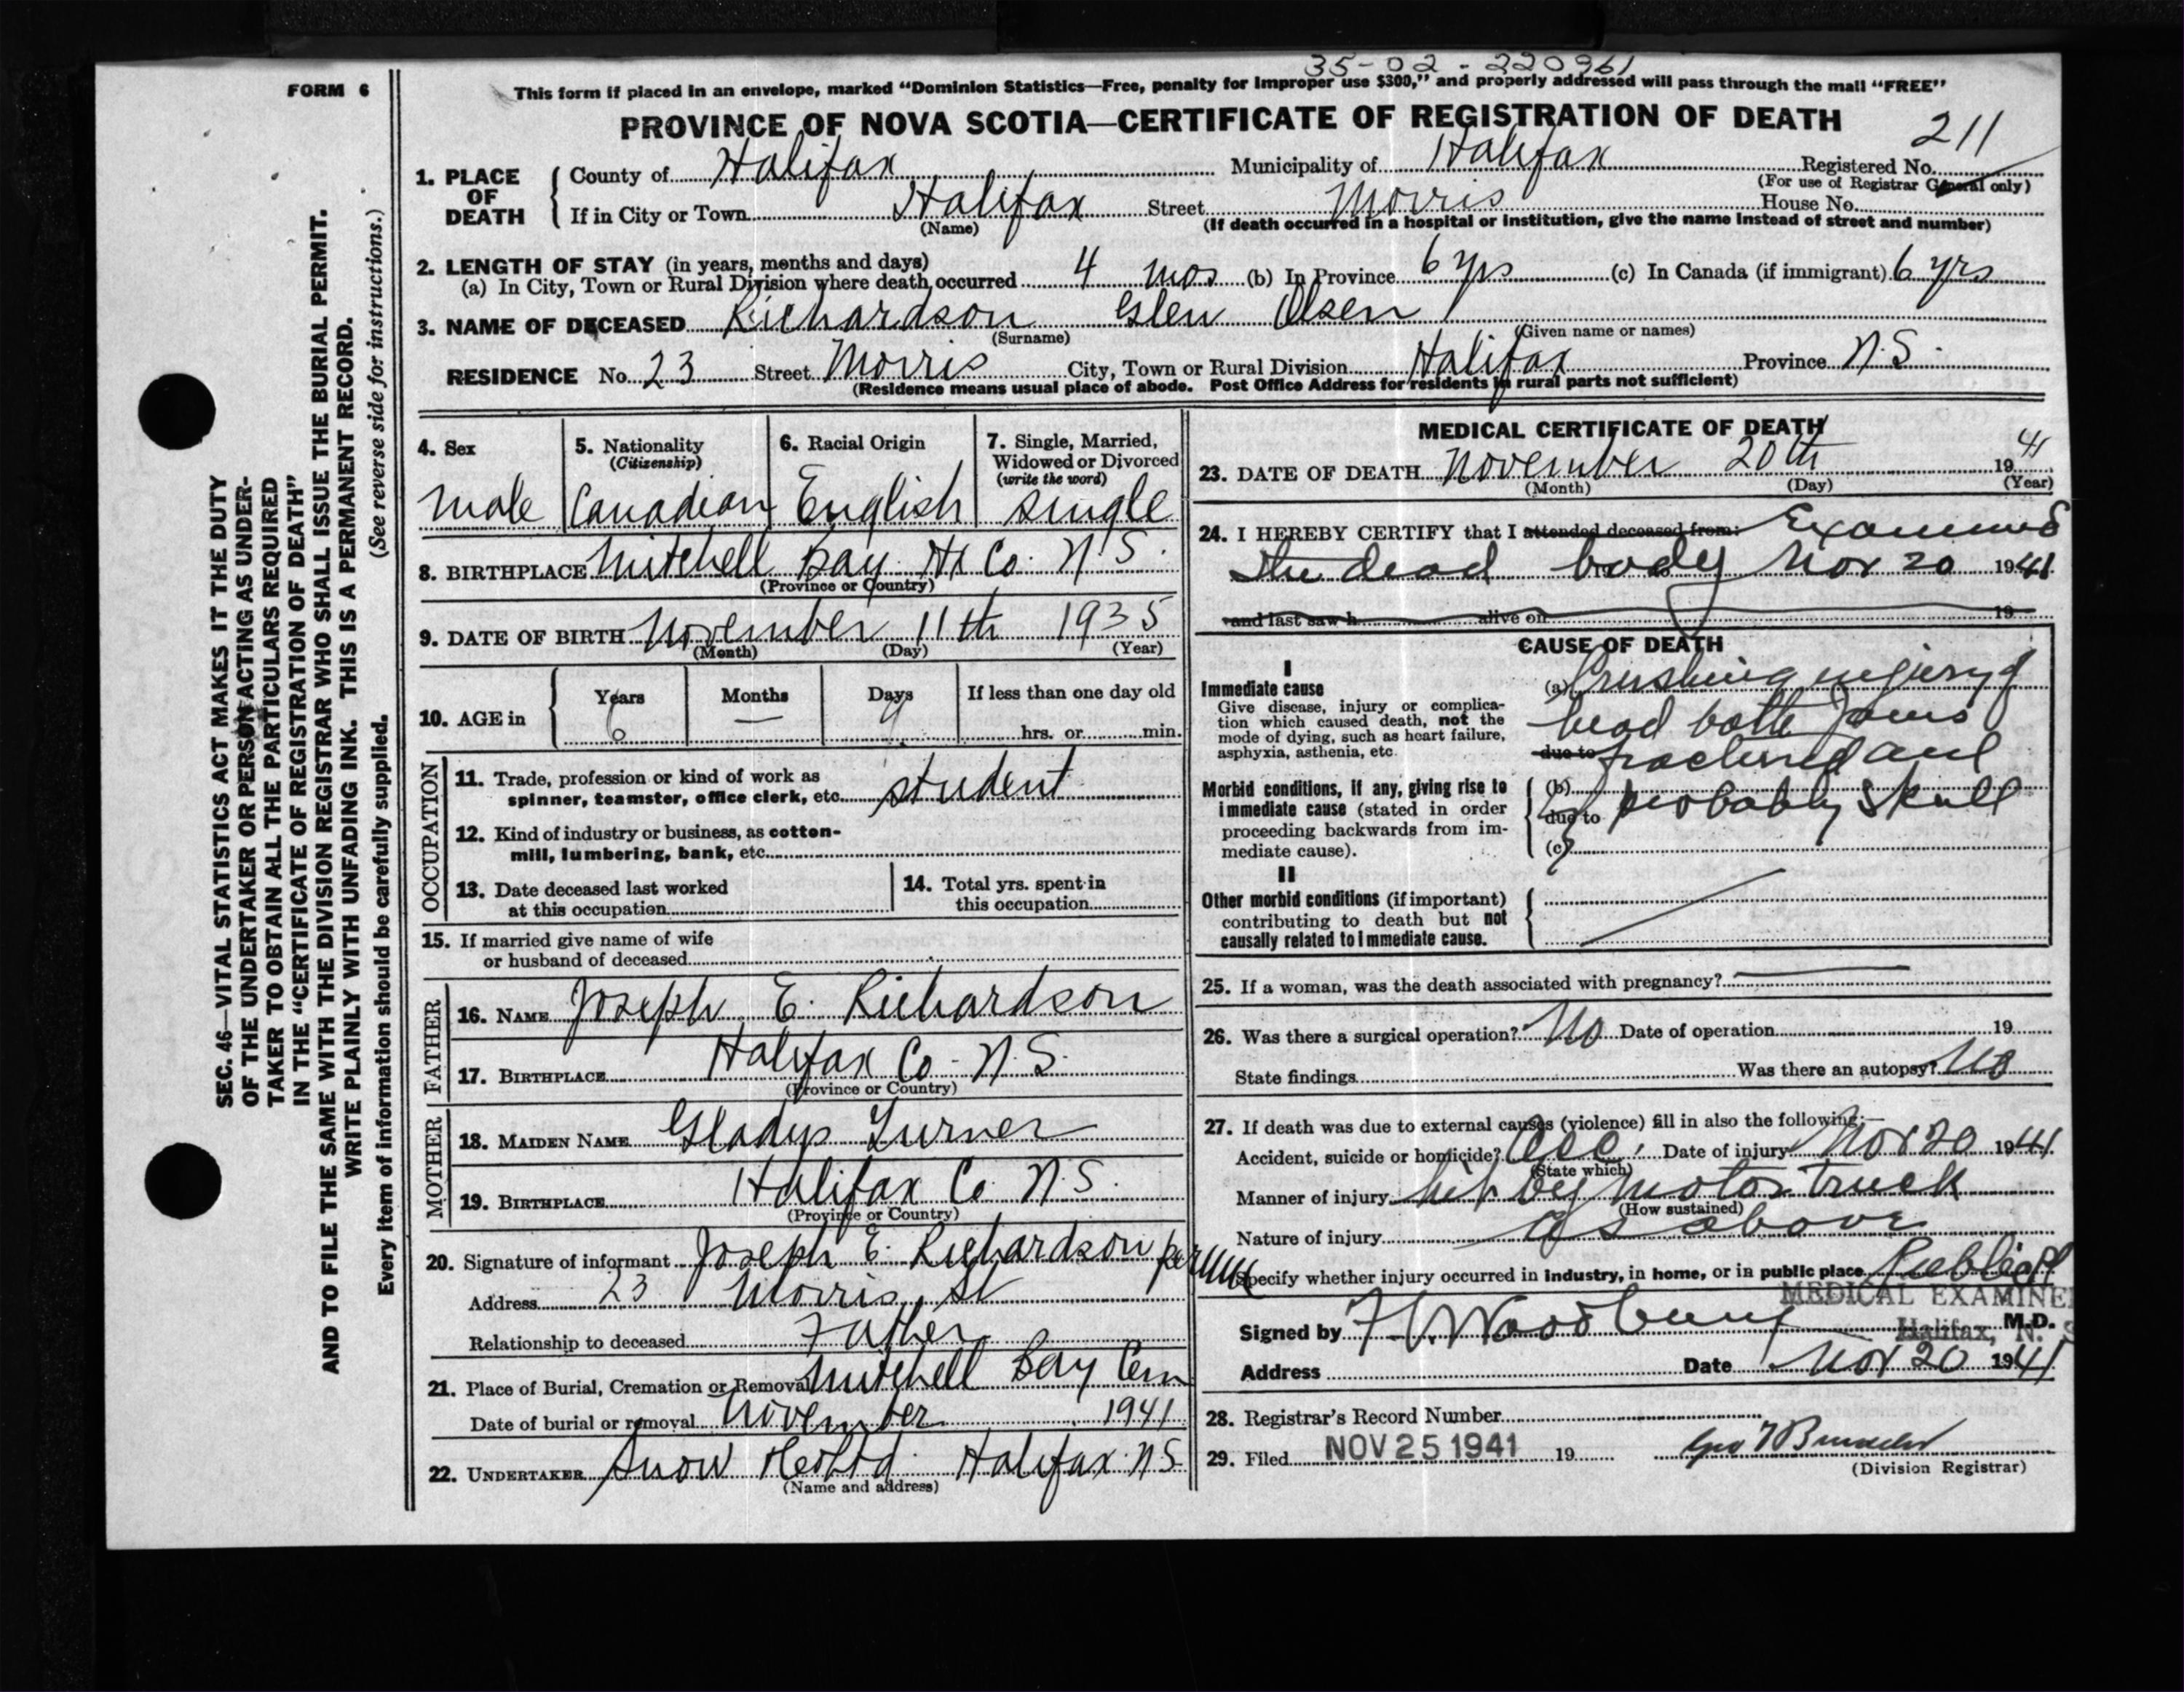 35-02-220961
FORM 6
This form if placed in an envelope, marked "Dominion Statistics—Free, penalty for Improper use $300," and properly addressed will pass through the mail "FREE"
PROVINCE OF NOVA SCOTIA—CERTIFICATE OF REGISTRATION OF DEATH
211
1. PLACE OF DEATH
County of Halifax Municipality of Halifax Registered No.
(For use of Registrar General only)
If in City or Town Halifax Street Morris House No.
(Name) (If death occurred in a hospital or institution, give the name instead of street and number)
2. LENGTH OF STAY (in years, months and days)
(a) In City, Town or Rural Division where death occurred 4 mos (b) In Province 6 yrs (c) In Canada (if immigrant) 6 yrs
3. NAME OF DECEASED Richardson Glen Olsen
(Surname) (Given name or names)
RESIDENCE No. 23 Street Morris City, Town or Rural Division Halifax Province N.S.
(Residence means usual place of abode. Post Office Address for residents in rural parts not sufficient)
4. Sex
male
5. Nationality
(Citizenship)
Canadian
6. Racial Origin
English
7. Single, Married,
Widowed or Divorced
(write the word)
single
8. BIRTHPLACE Mitchell Bay Hx Co. N.S.
(Province or Country)
9. DATE OF BIRTH November 11th 1935
(Month) (Day) (Year)
10. AGE in
Years Months Days If less than one day old
6 — 9 hrs. or min.
OCCUPATION
11. Trade, profession or kind of work as
spinner, teamster, office clerk, etc. student
12. Kind of industry or business, as cotton-
mill, lumbering, bank, etc.
13. Date deceased last worked
at this occupation
14. Total yrs. spent in
this occupation
15. If married give name of wife
or husband of deceased
FATHER
16. NAME Joseph E. Richardson
17. BIRTHPLACE Halifax Co. N.S.
(Province or Country)
MOTHER
18. MAIDEN NAME Gladys Turner
19. BIRTHPLACE Halifax Co N.S.
(Province or Country)
20. Signature of informant Joseph E. Richardson per
Address 23 Morris St
Relationship to deceased Father
21. Place of Burial, Cremation or Removal Mitchell Bay Cem
Date of burial or removal November 1941
22. UNDERTAKER Snow & Co Ltd. Halifax N.S.
(Name and address)
MEDICAL CERTIFICATE OF DEATH
23. DATE OF DEATH November 20th 1941
(Month) (Day) (Year)
24. I HEREBY CERTIFY that I attended deceased from: Examined
the dead body Nov 20 1941
and last saw h alive on 19
CAUSE OF DEATH
I
Immediate cause
Give disease, injury or complica-
tion which caused death, not the
mode of dying, such as heart failure,
asphyxia, asthenia, etc.
(a) Crushing injury of
head both jaws
due to fractured and
Morbid conditions, if any, giving rise to
immediate cause (stated in order
proceeding backwards from im-
mediate cause).
(b)
due to probably skull
(c)
II
Other morbid conditions (if important)
contributing to death but not
causally related to immediate cause.
25. If a woman, was the death associated with pregnancy?
26. Was there a surgical operation? No Date of operation 19
State findings Was there an autopsy? No
27. If death was due to external causes (violence) fill in also the following:—
Accident, suicide or homicide? Acc. Date of injury Nov 20 1941
(State which)
Manner of injury hit by motor truck
(How sustained)
Nature of injury as above
Specify whether injury occurred in industry, in home, or in public place Public Pl
MEDICAL EXAMINER
Signed by F. V. Woodbury M.D.
Halifax, N. S
Address Date Nov 20 1941
28. Registrar's Record Number
29. Filed NOV 25 1941 19
(Division Registrar)
SEC. 46—VITAL STATISTICS ACT MAKES IT THE DUTY
OF THE UNDERTAKER OR PERSON ACTING AS UNDER-
TAKER TO OBTAIN ALL THE PARTICULARS REQUIRED
IN THE "CERTIFICATE OF REGISTRATION OF DEATH"
AND TO FILE THE SAME WITH THE DIVISION REGISTRAR WHO SHALL ISSUE THE BURIAL PERMIT.
WRITE PLAINLY WITH UNFADING INK. THIS IS A PERMANENT RECORD.
(See reverse side for instructions.)
Every item of information should be carefully supplied.